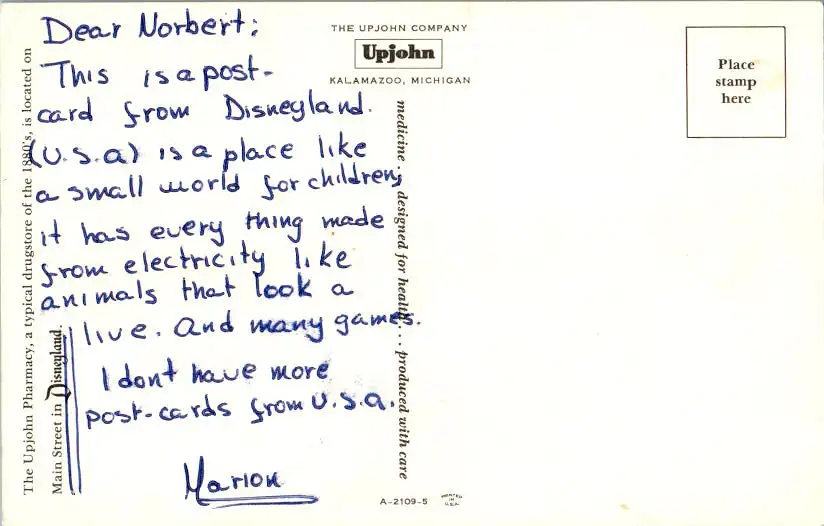 Dear Norbert:
This is a post-
card from Disneyland.
(U.S.a) is a place like
a small world for children,
it has every thing made
from electricity like
animals that look a
live. And many games.
I dont have more
post-cards from U.S.a.
Marion
The Upjohn Pharmacy, a typical drugstore of the 1880's, is located on
Main Street in Disneyland.
THE UPJOHN COMPANY
Upjohn
KALAMAZOO, MICHIGAN
medicine... designed for health... produced with care
A-2109-5
PRINTED
IN
U.S.A.
Place
stamp
here